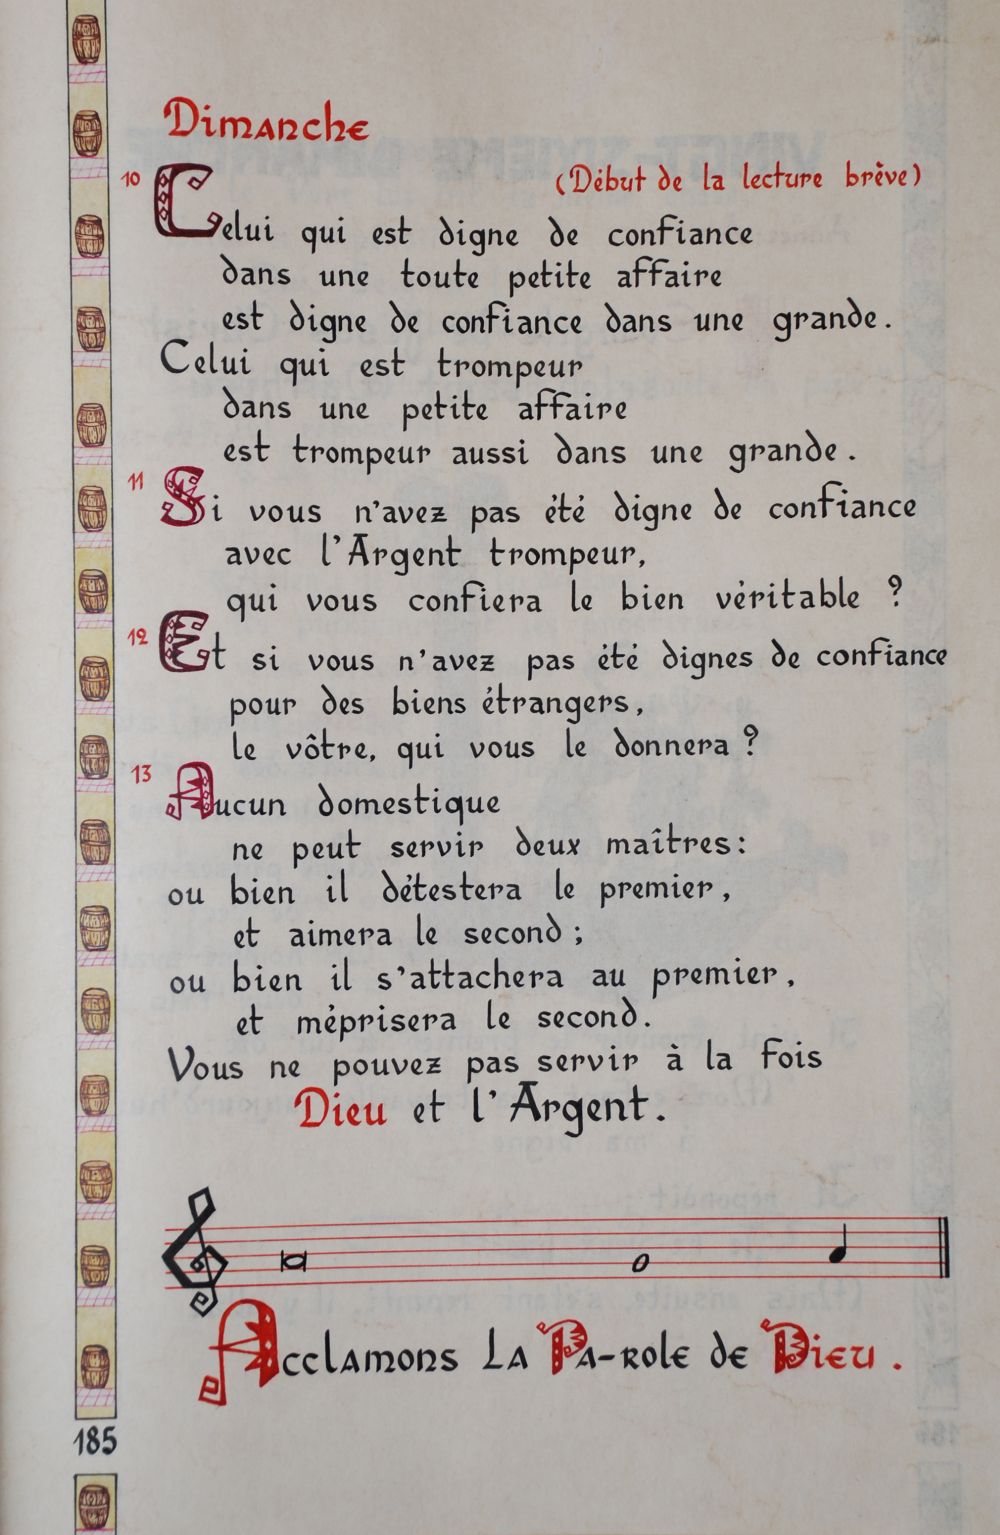 Dimanche
10 (Début de la lecture brève)
Celui qui est digne de confiance
dans une toute petite affaire
est digne de confiance dans une grande.
Celui qui est trompeur
dans une petite affaire
est trompeur aussi dans une grande.
11 Si vous n'avez pas été digne de confiance
avec l'Argent trompeur,
qui vous confiera le bien véritable ?
12 Et si vous n'avez pas été dignes de confiance
pour des biens étrangers,
le vôtre, qui vous le donnera ?
13 Aucun domestique
ne peut servir deux maîtres:
ou bien il détestera le premier,
et aimera le second ;
ou bien il s'attachera au premier,
et méprisera le second.
Vous ne pouvez pas servir à la fois
Dieu et l'Argent.
Acclamons La Pa-role de Dieu.
185